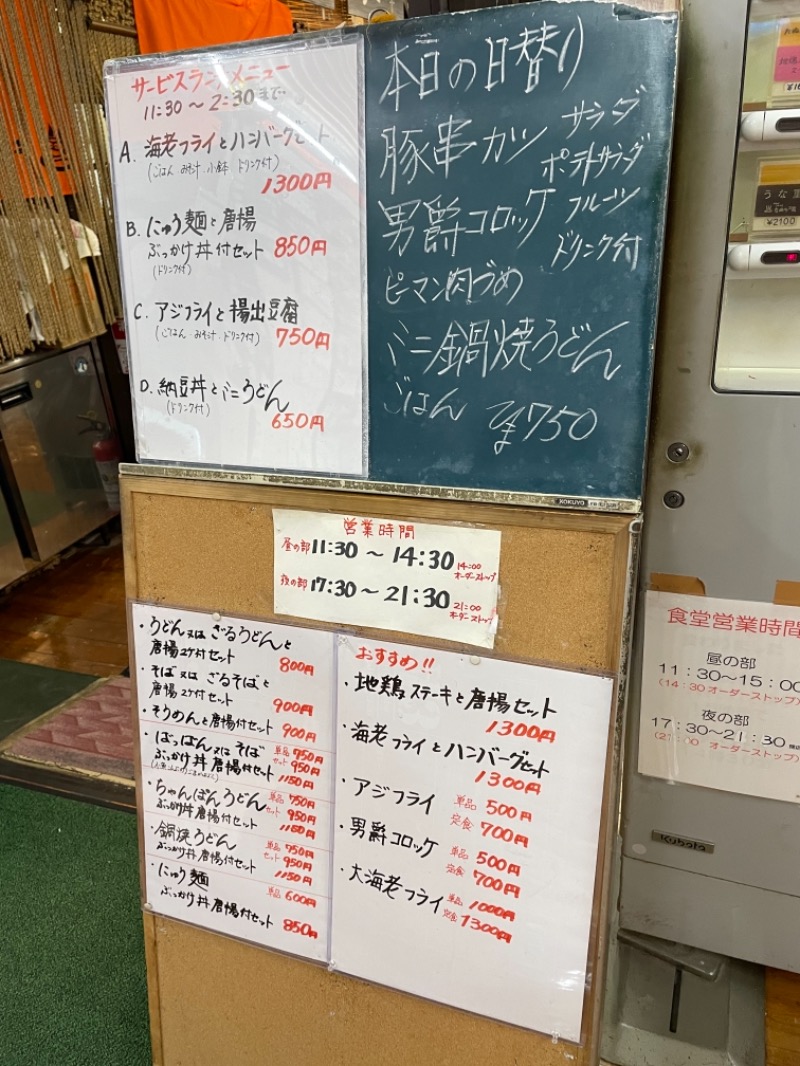 サービスランチメニュー
11:30～2:30まで
A. 海老フライとハンバーグセット
(ごはん・みそ汁・小鉢・ドリンク付)
1300円
B. にゅう麺と唐揚
ぶっかけ丼付セット 850円
(ドリンク付)
C. アジフライと揚出豆腐
(ごはん・みそ汁・ドリンク付) 750円
D. 納豆丼とミニうどん
(ドリンク付)
650円
本日の日替り
豚串カツ サラダ
ポテトサラダ
男爵コロッケ フルーツ
ドリンク付
ピーマン肉づめ
ミニ鍋焼うどん
ごはん
¥750
KOKUYO
営業時間
昼の部 11:30～14:30 14:00
オーダーストップ
夜の部 17:30～21:30 21:00
オーダーストップ
・うどん又は ざるうどんと
唐揚2ケ付セット 800円
・そば又は ざるそばと
唐揚2ケ付セット 900円
・そうめんと唐揚付セット 900円
・ばっぽん又はそば 単品 750円
セット 950円
ぶっかけ丼唐揚付セット 1150円
・ちゃんぽんうどん 単品 750円
セット 950円
ぶっかけ丼唐揚付セット 1150円
・鍋焼うどん 単品 750円
セット 950円
ぶっかけ丼唐揚付セット 1150円
・にゅう麺 単品 600円
ぶっかけ丼唐揚付セット 850円
おすすめ!!
・地鶏ステーキと唐揚セット
1300円
・海老フライとハンバーグセット
1300円
・アジフライ 単品 500円
定食 700円
・男爵コロッケ 単品 500円
定食 700円
・大海老フライ 単品 1000円
定食 1300円
うな重
¥2100
食堂営業時間
昼の部
11:30～15:00
(14:30オーダーストップ)
夜の部
17:30～21:30
(21:00 オーダーストップ)
Kubota